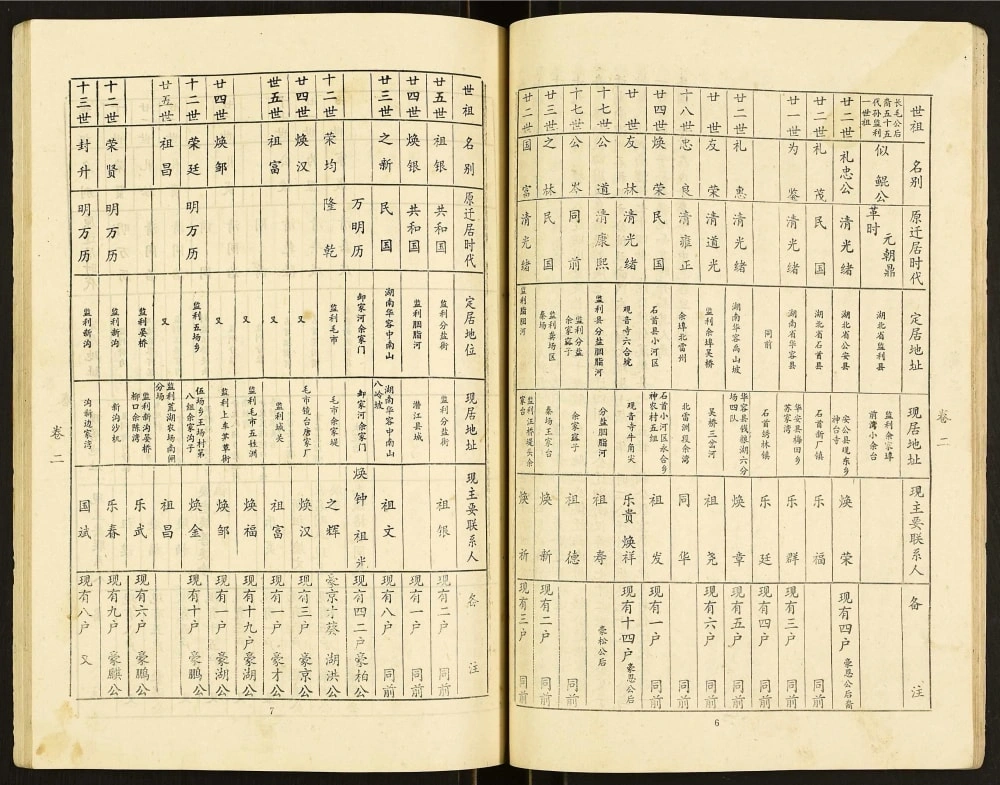 卷二
世祖 名别 原迁居时代 定居地址 现居地址 现主要联系人 备注
长毛公后裔五十五代孙监利一世祖 似鲲公 元朝鼎革时 湖北省监利县 监利余家埠前湾小余台
廿二世 礼忠公 清光绪 湖北省公安县 安公县现东乡神台寺 焕荣 现有四户 豪恩公后裔
廿二世 礼茂 民国 湖北省石首县 石首新厂镇 乐福 同前
廿一世 为鉴 清光绪 湖南省华容县 华安县梅田乡苏家湾 乐群 现有三户 同前
同前 石首绣林镇 乐廷 现有四户 同前
廿二世 礼惠 清光绪 湖南华容禹山坡 华容县钱粮湖六分场四队 焕章 现有五户 同前
廿世 友荣 清道光 监利余埠吴桥 吴桥三岔河 祖尧 现有六户
十八世 忠良 清雍正 余埠北雷州 北雷洲段余湾 同华 同前
廿四世 焕荣 民国 石首县小河区 石首小河区永合乡神农村五组 祖发 现有一户 同前
廿世 友林 清光绪 观音寺六合境 观音寺牛角尖 乐贵 焕祥 现有十四户 豪恩公后
十七世 公道 清康熙 监利县分盐胭脂河 分盐胭脂河 祖寿 豪松公后
十七世 公岑 同前 监利分盐余家 余家 祖德 同前
廿三世 之林 民国 监利龚场区秦场 秦场王家台 焕新 现有二户 同前
廿二世 国富 清光绪 监利胭脂河 监利江桥堤头余家台 焕祈 现有三户 同前
6
世祖 名别 原迁居时代 定居地位 现居地址 现主要联系人 备注
廿五世 祖银 共和国 监利分盐街 监利分盐街 祖银 现有二户 同前
廿四世 焕银 共和国 监利胭脂河 潜江县城 现有一户 同前
廿三世 之新 民国 湖南华容中南山 湖南华容中南山八冷坡 祖文 现有八户 同前
万明历 卸家河余家门 卸家河余家门 焕钟 祖光 现有四二户 豪柏公
十二世 荣均 隆乾 监利毛市 毛市余家堤 之辉 豪京才葵 湖洪公
廿四世 焕汉 又 毛市镜台唐家厂 焕汉 现有三户 豪京公
世五世 祖富 又 监利城关 祖富 现有一户 豪才公
又 监利毛市五柱洲 焕福 现有十九户 豪湖公
廿四世 焕邹 又 监利上车茅草街 焕邹 现有一户 豪湖公
十二世 荣廷 明万历 监利五场乡 伍场乡王场村第八组余家沟子 焕金 现有十户 豪鹏公
廿五世 祖昌 又 监利荒湖农场南闸分场 祖昌
监利晏桥 监利新沟晏桥柳口余陈湾 乐武 现有六户 豪鹏公
十二世 荣贤 明万历 监利新沟 新沟沙机 乐春 现有九户 豪麒公
十三世 封升 明万历 监利新沟 沟新边家湾 国斌 现有八户 又
卷二
7